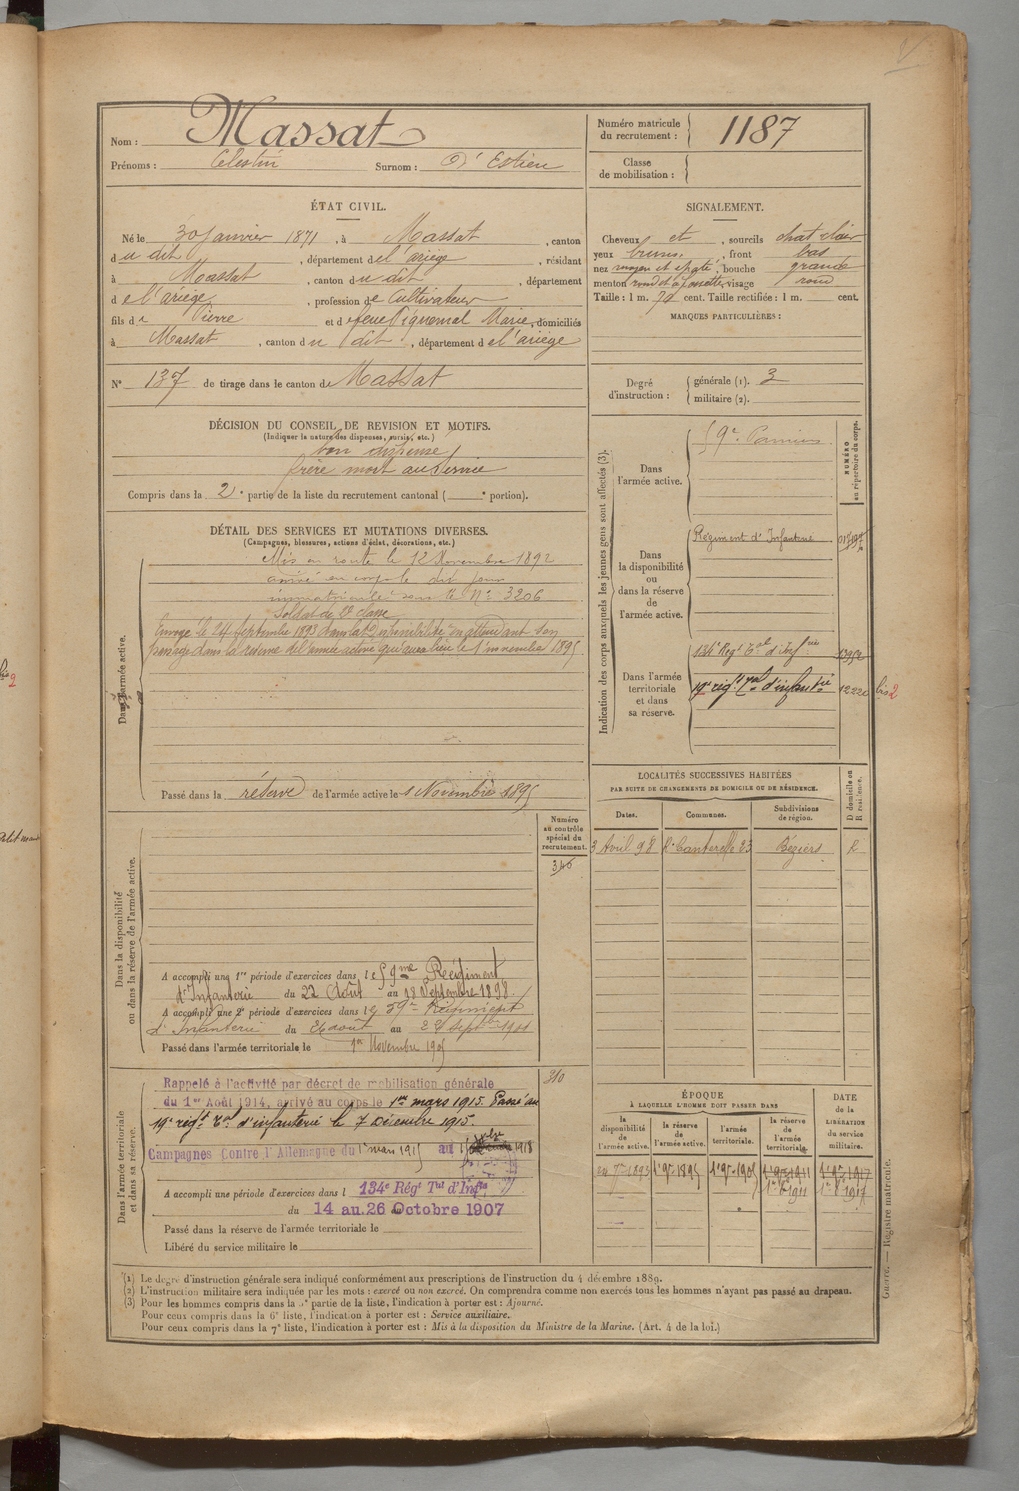 Nom : Massat
Prénoms : Célestin Surnom : D'Estieu
Numéro matricule du recrutement : 1187
Classe de mobilisation :
ÉTAT CIVIL.
Né le 30 Janvier 1871, à Massat, canton
du dit, département de l'ariège, résidant
à Massat, canton du dit, département
de l'ariège, profession de Cultivateur
fils de Pierre et de feue Piquemal Marie, domiciliés
à Massat, canton du dit, département de l'ariège
N° 137 de tirage dans le canton de Massat
SIGNALEMENT.
Cheveux et, sourcils chat clair
yeux bruns, front bas
nez moyen et épaté, bouche grande
menton rond et à fossette, visage rond
Taille : 1 m. 79 cent. Taille rectifiée : 1 m. cent.
MARQUES PARTICULIÈRES :
Degré d'instruction : générale (1). 3
militaire (2).
DÉCISION DU CONSEIL DE REVISION ET MOTIFS.
(Indiquer la nature des dispenses, sursis, etc.)
bon dispensé
frère mort au service
Compris dans la 2e partie de la liste du recrutement cantonal ( e portion).
DÉTAIL DES SERVICES ET MUTATIONS DIVERSES.
(Campagnes, blessures, actions d'éclat, décorations, etc.)
Dans l'armée active.
Mis en route le 12 Novembre 1892
arrivé au corps le dit jour
immatriculé sous le N° 3206
Soldat de 2e classe
Envoyé le 24 Septembre 1893 dans la disponibilité en attendant son
passage dans la réserve de l'armée active qui aura lieu le 1er novembre 1895
Passé dans la réserve de l'armée active le 1 Novembre 1895
Indication des corps auxquels les jeunes gens sont affectés (3).
NUMÉRO au répertoire du corps.
Dans l'armée active.
59e Pamiers
Dans la disponibilité ou dans la réserve de l'armée active.
Régiment d'Infanterie
Dans l'armée territoriale et dans sa réserve.
134e Régt Tal d'Infrie 1395
19e régt Tal d'infantrie 1222 bis 2
LOCALITÉS SUCCESSIVES HABITÉES
PAR SUITE DE CHANGEMENTS DE DOMICILE OU DE RÉSIDENCE.
Dates. Communes. Subdivisions de région. D domicile ou R résidence.
3 Avril 98 Béziers R
Dans la disponibilité ou dans la réserve de l'armée active.
Numéro au contrôle spécial du recrutement.
346
A accompli une 1re période d'exercices dans le 59me Régiment
d'Infanterie du 22 Août au 18 Septembre 1898.
A accompli une 2e période d'exercices dans le 59e Régiment
d'Infanterie du 26 août au 22 septbre 1901
Passé dans l'armée territoriale le 1er Novembre 1905
Dans l'armée territoriale et dans sa réserve.
310
Rappelé à l'activité par décret de mobilisation générale
du 1er Août 1914, arrivé au corps le 1er mars 1915. Passé au
19e régt Tal d'infanterie le 7 Décembre 1915.
Campagnes Contre l'Allemagne du 1er mars 1915 au 1918
A accompli une période d'exercices dans l 134e Régt Tal d'Infie
du 14 au 26 Octobre 1907
Passé dans la réserve de l'armée territoriale le
Libéré du service militaire le
ÉPOQUE
À LAQUELLE L'HOMME DOIT PASSER DANS
la disponibilité de l'armée active. la réserve de l'armée active. l'armée territoriale. la réserve de l'armée territoriale.
DATE de la LIBÉRATION du service militaire.
24 7bre 1893 1er 9bre 1895 1er 9bre 1905 1er 9bre 1911 1er 9bre 1917
1911 1917
(1) Le degré d'instruction générale sera indiqué conformément aux prescriptions de l'instruction du 4 décembre 1889.
(2) L'instruction militaire sera indiquée par les mots : exercé ou non exercé. On comprendra comme non exercés tous les hommes n'ayant pas passé au drapeau.
(3) Pour les hommes compris dans la 5e partie de la liste, l'indication à porter est : Ajourné.
Pour ceux compris dans la 6e liste, l'indication à porter est : Service auxiliaire.
Pour ceux compris dans la 7e liste, l'indication à porter est : Mis à la disposition du Ministre de la Marine. (Art. 4 de la loi.)
Guerre. — Registre matricule.